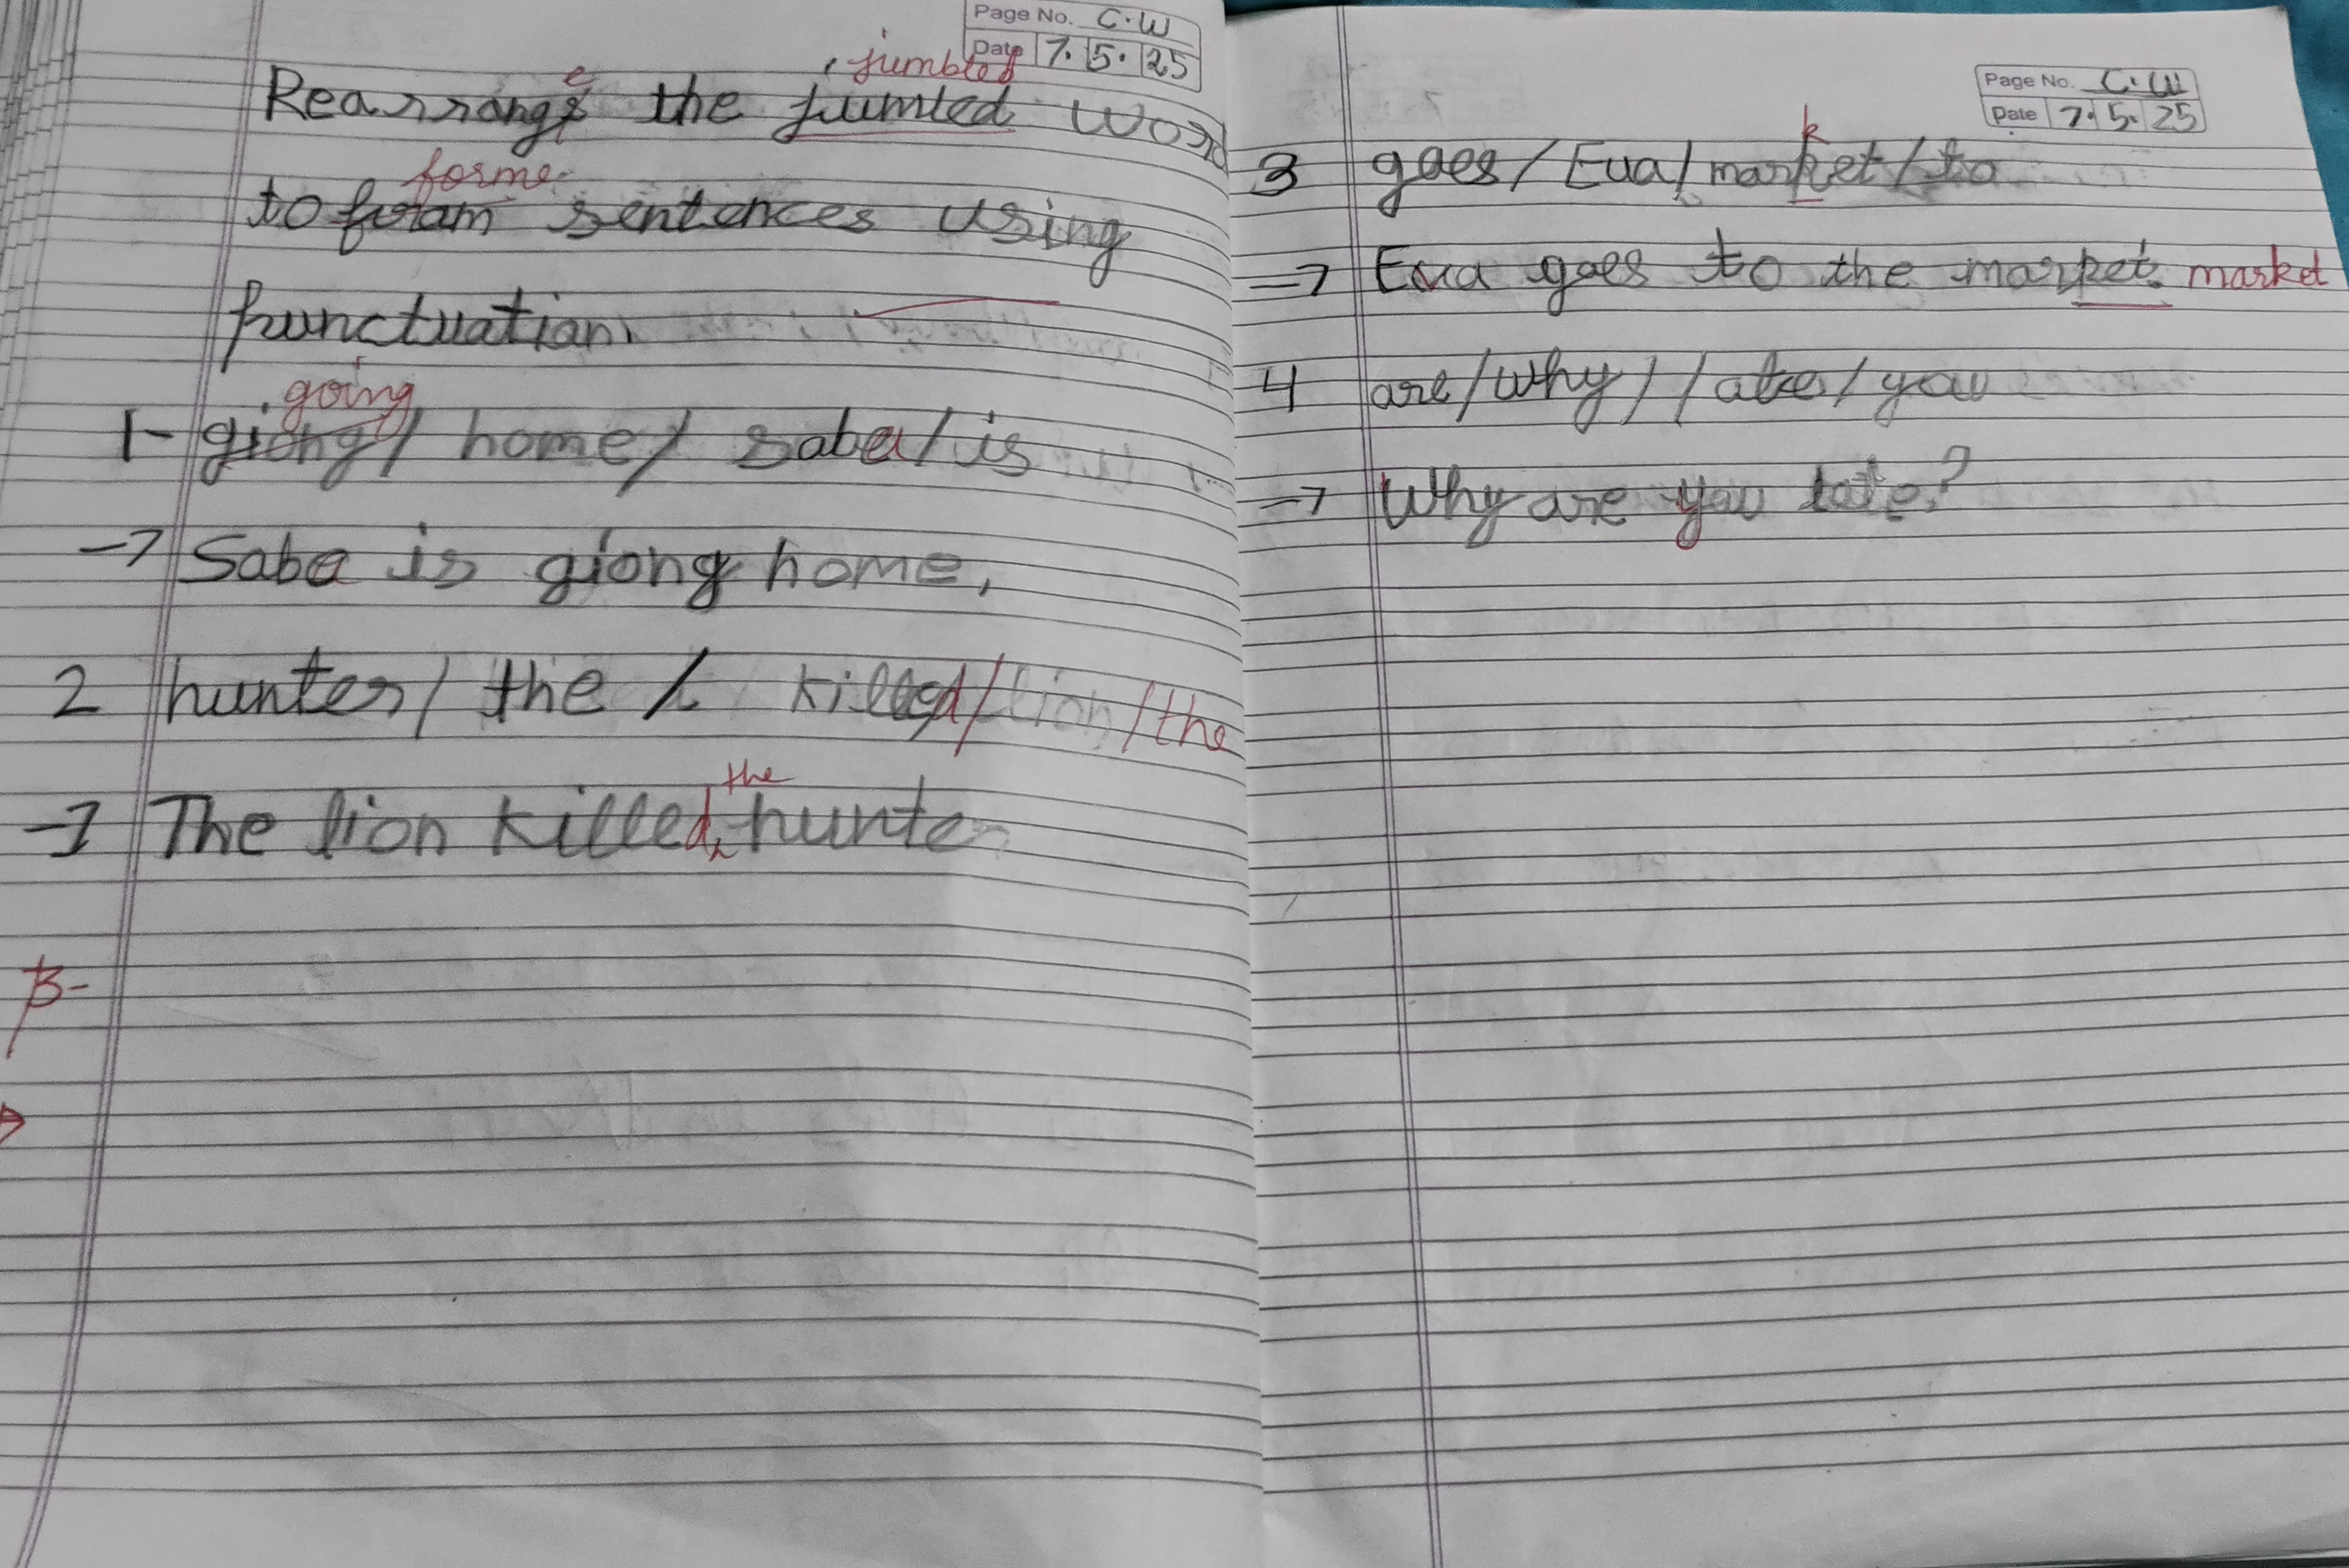 Page No. C.W
Date 7. 5. 25
jumbled
e
Rearrange the jumled word
forme
to foram sentences using
punctuation.
going
1- giong / home / saba / is
→ Saba is giong home,
2 hunter / the / killed / lion / the
the
→ The lion killed hunte
B-
Page No. C.W
Date 7. 5. 25
k
3 goes / Eva / market / to
⇒ Eva goes to the marpet. market
4 are / why / late / you
→ Why are you late?